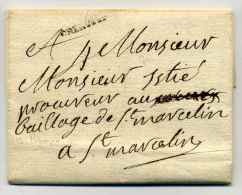 A Monsieur
Monsieur
procureur au
baillage de st marcelin
a st marcelin